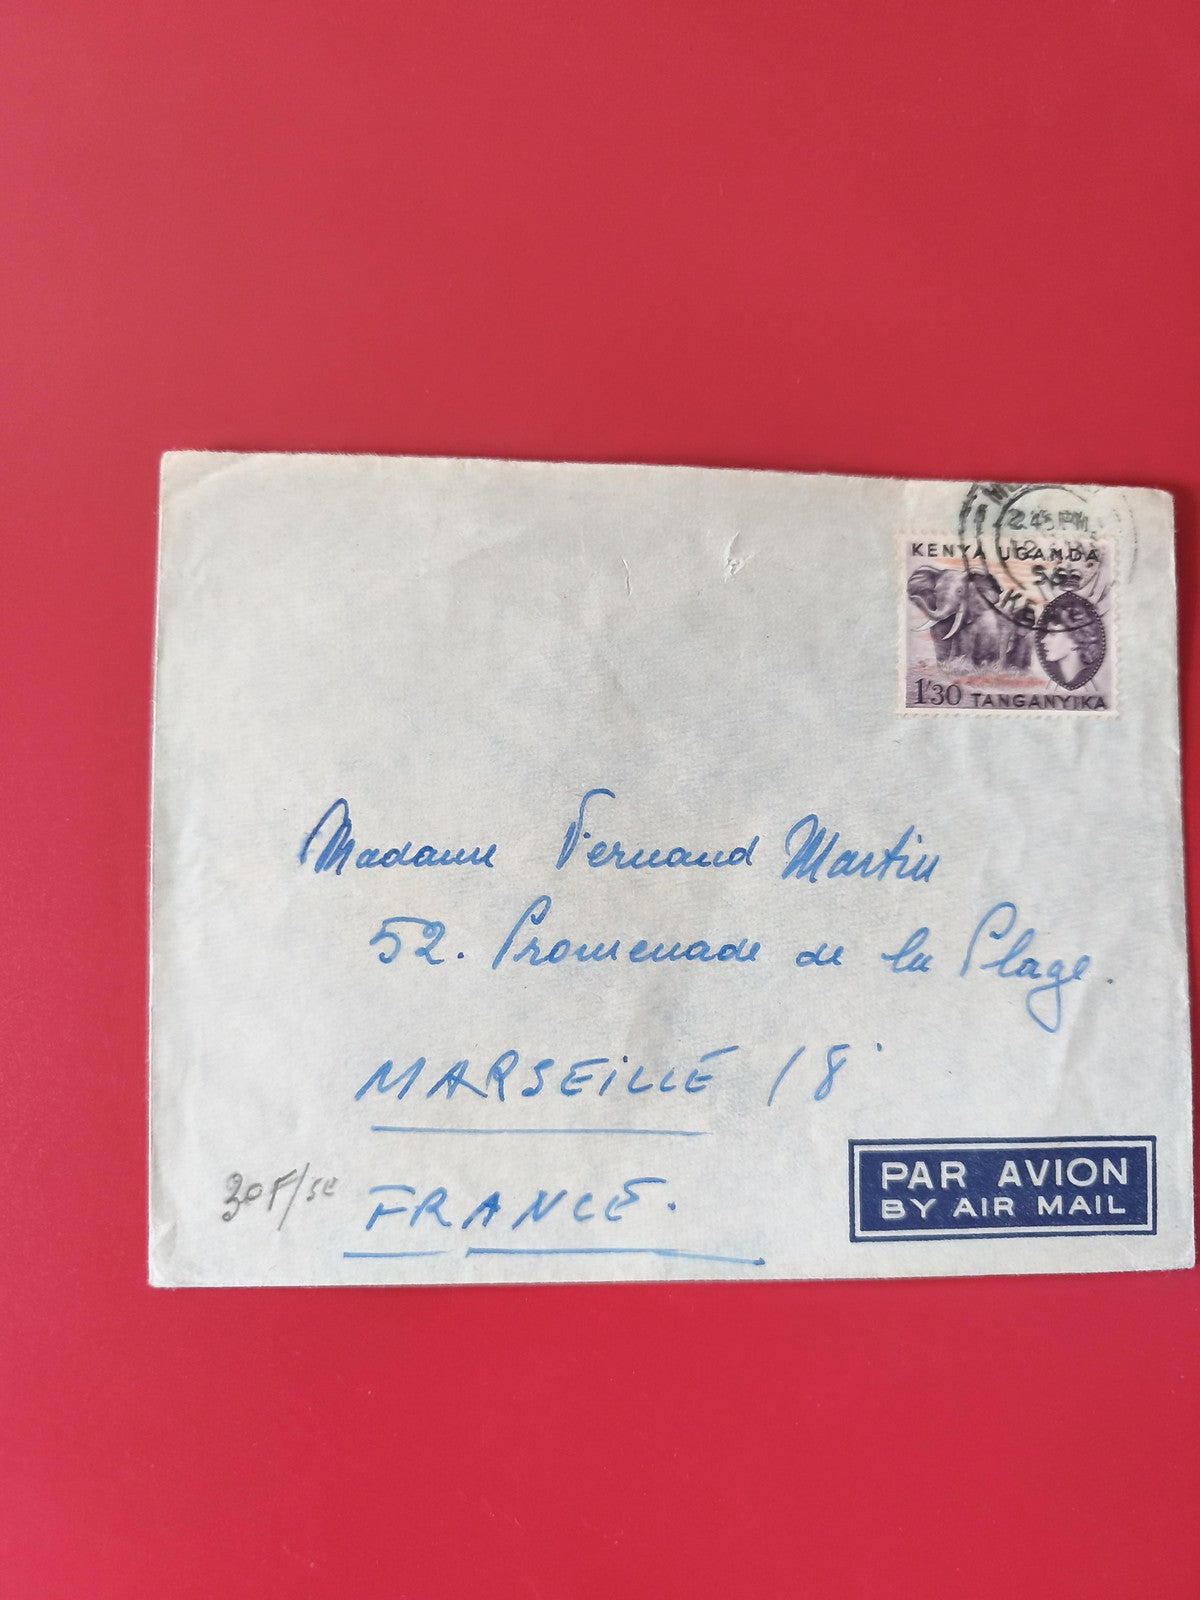 2.45 PM
KENYA UGANDA
1/30 TANGANYIKA
Madame Fernand Martin
52. Promenade de la Plage.
MARSEILLE 18
30F/
FRANCE.
PAR AVION
BY AIR MAIL